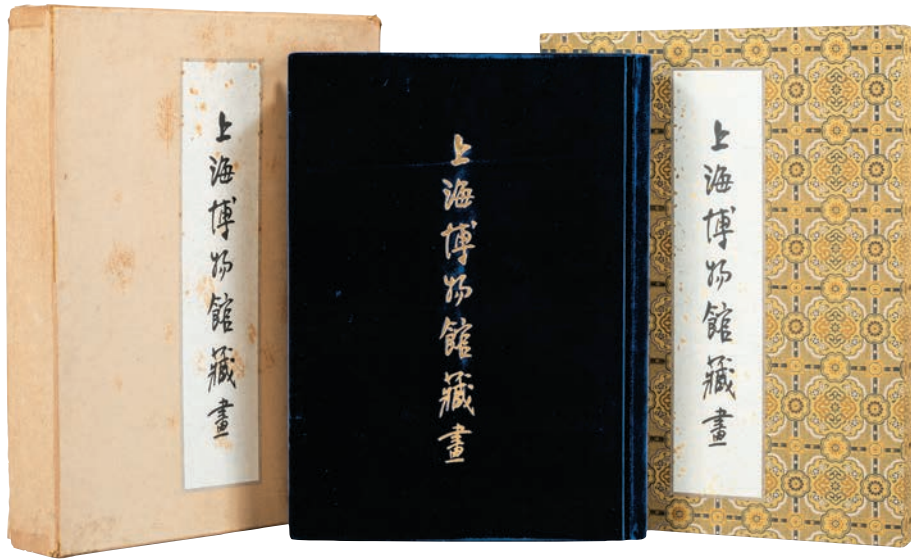 上海博物館藏畫
上海博物館藏畫
上海博物館藏畫